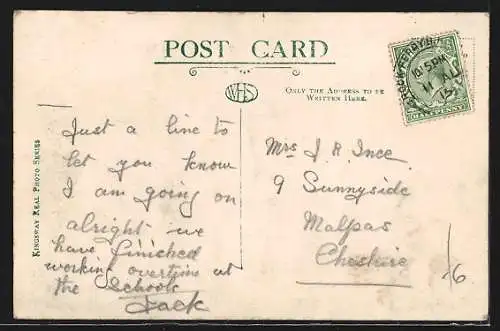 POST CARD
WHS
ONLY THE ADDRESS TO BE
WRITTEN HERE.
KINGSWAY REAL PHOTO SERIES
ROCK FERRY
10.15PM
11 JL
15
HALFPENNY
Just a line to
let you know
I am going on
alright we
have finished
working overtime at
the Schools
Jack
Mrs J. R. Ince.
9 Sunnyside
Malpas
Cheshire
6